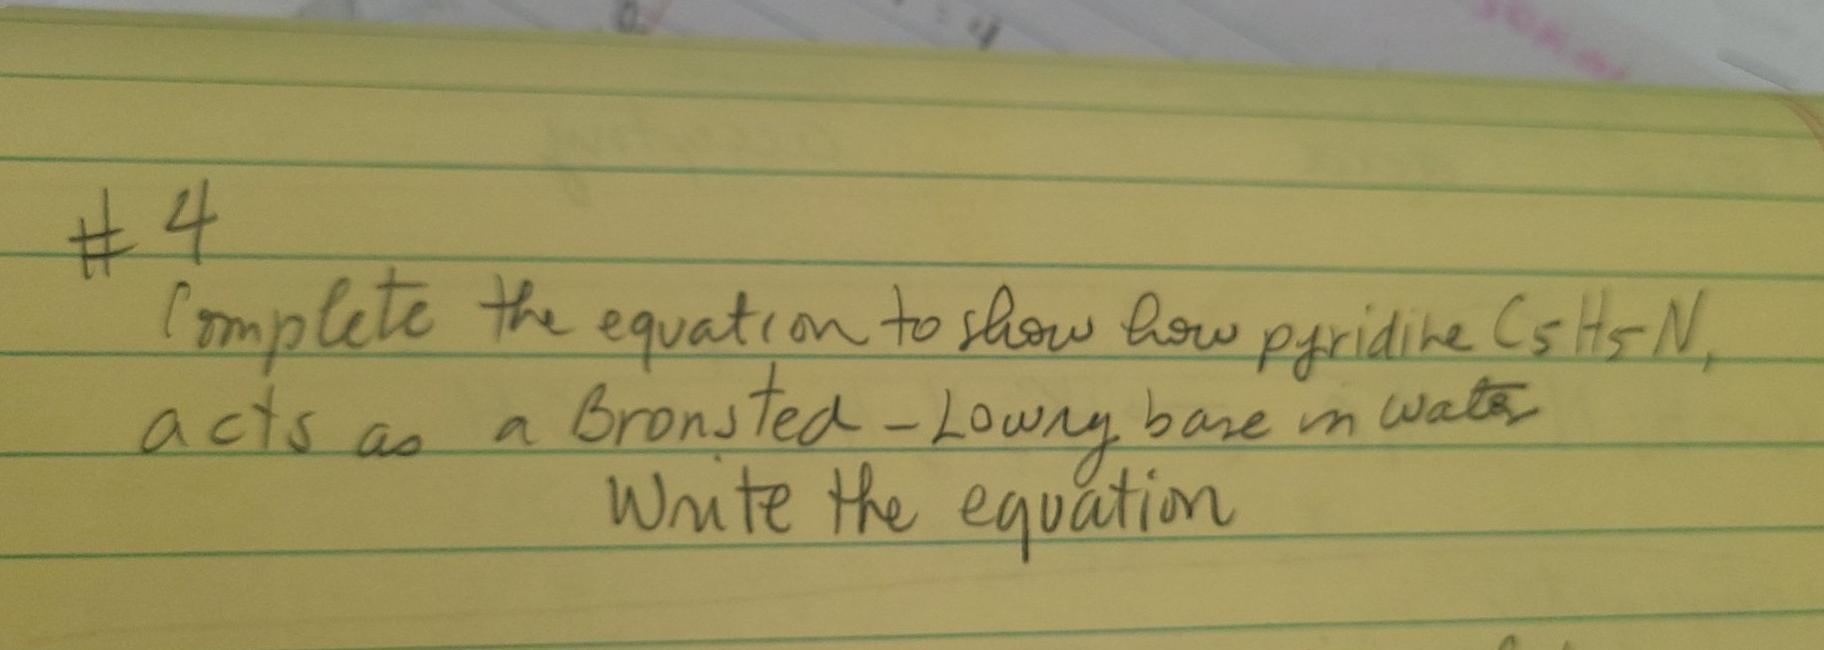 #4
Complete the equation to show how pyridine C5H5N,
acts as a Bronsted-Lowry base in water
Write the equation